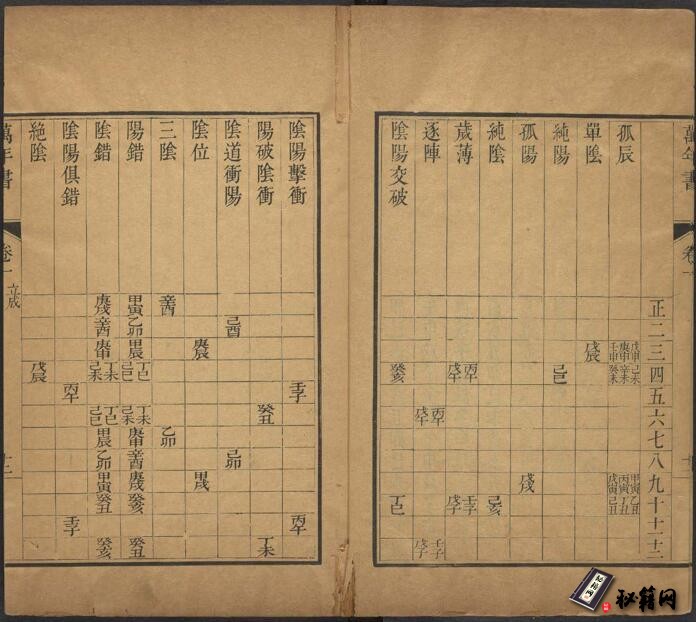 萬年書 卷一
正 二 三 四 五 六 七 八 九 十 十一 十二
孤辰 戊申 庚申 壬申 己未 辛未 癸未 甲寅 丙寅 戊寅 乙丑 丁丑 己丑
單陰 戊辰
純陽 己巳
孤陽 戊戌
純陰 己亥
歲薄 丙午 戊午 壬子 戊子
逐陣 丙午 戊午 壬子 戊子
陰陽交破 癸亥 丁巳
陰陽擊衝 壬子 丙午
陽破陰衝 癸丑 丁未
陰道衝陽 己酉 己卯
陰位 庚辰 甲戌
三陰 辛酉 乙卯
陽錯 甲寅 乙卯 甲辰 丁巳 己巳 丁未 己未 庚申 辛酉 庚戌 癸亥 癸丑
陰錯 庚戌 辛酉 庚申 丁未 己未 丁巳 己巳 甲辰 乙卯 甲寅 癸丑 癸亥
陰陽俱錯 丙午 壬子
絕陰 戊辰
萬年書 卷一 立成 十二
秘籍网